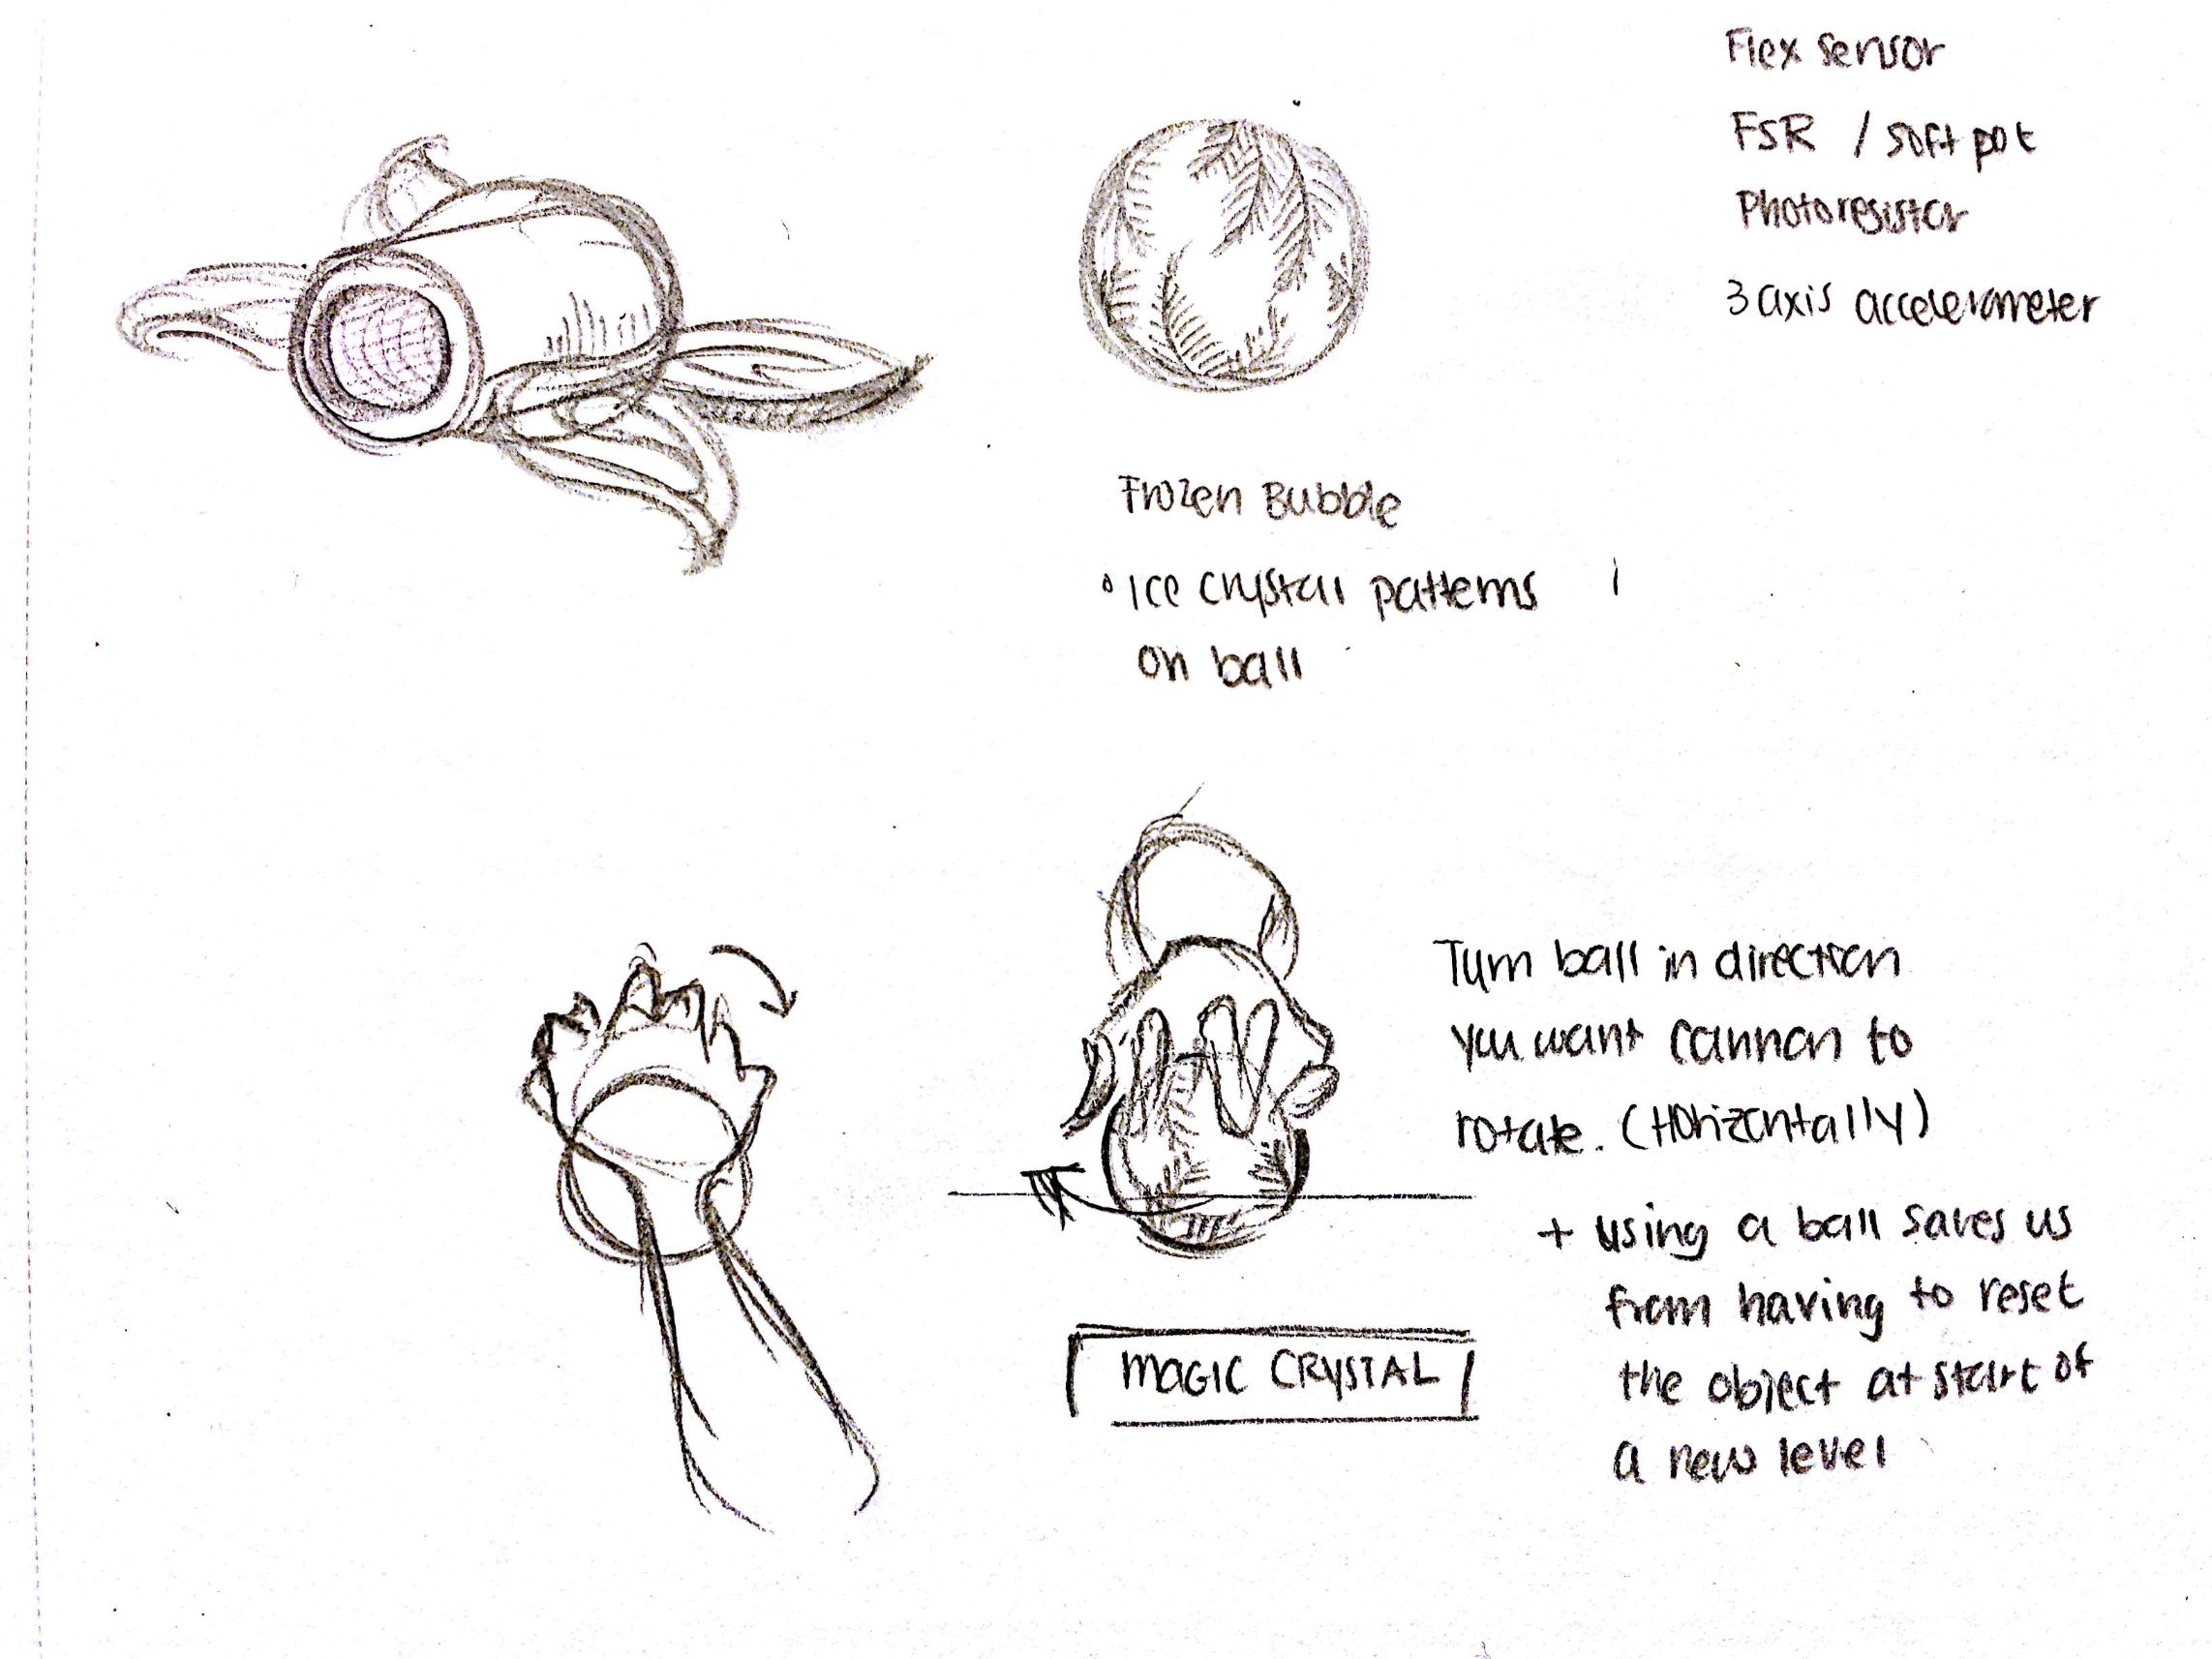 Flex sensor
FSR / soft pot
Photoresistor
3 axis accelerometer
Frozen Bubble
• Ice crystal patterns
on ball
Turn ball in direction
you want cannon to
rotate. (Horizontally)
+ using a ball saves us
from having to reset
the object at start of
a new level
MAGIC CRYSTAL